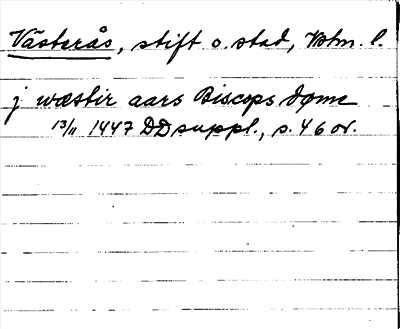 Västerås, stift o. stad, Vstm. l.
j wæstir aars Biscops døme
13/11 1447 DDsuppl., s. 46 or.